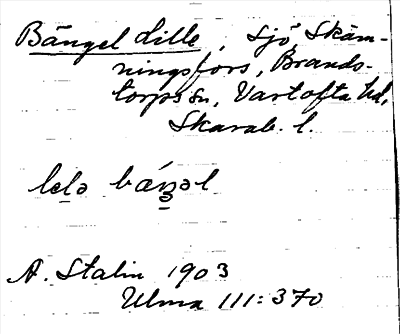 Bängel lille, Sjö Skäm-
ningsfors, Brands-
torps sn, Vartofta hd,
Skarab. l.
lelə báŋəl
A. Stalin 1903
Ulma 111:370